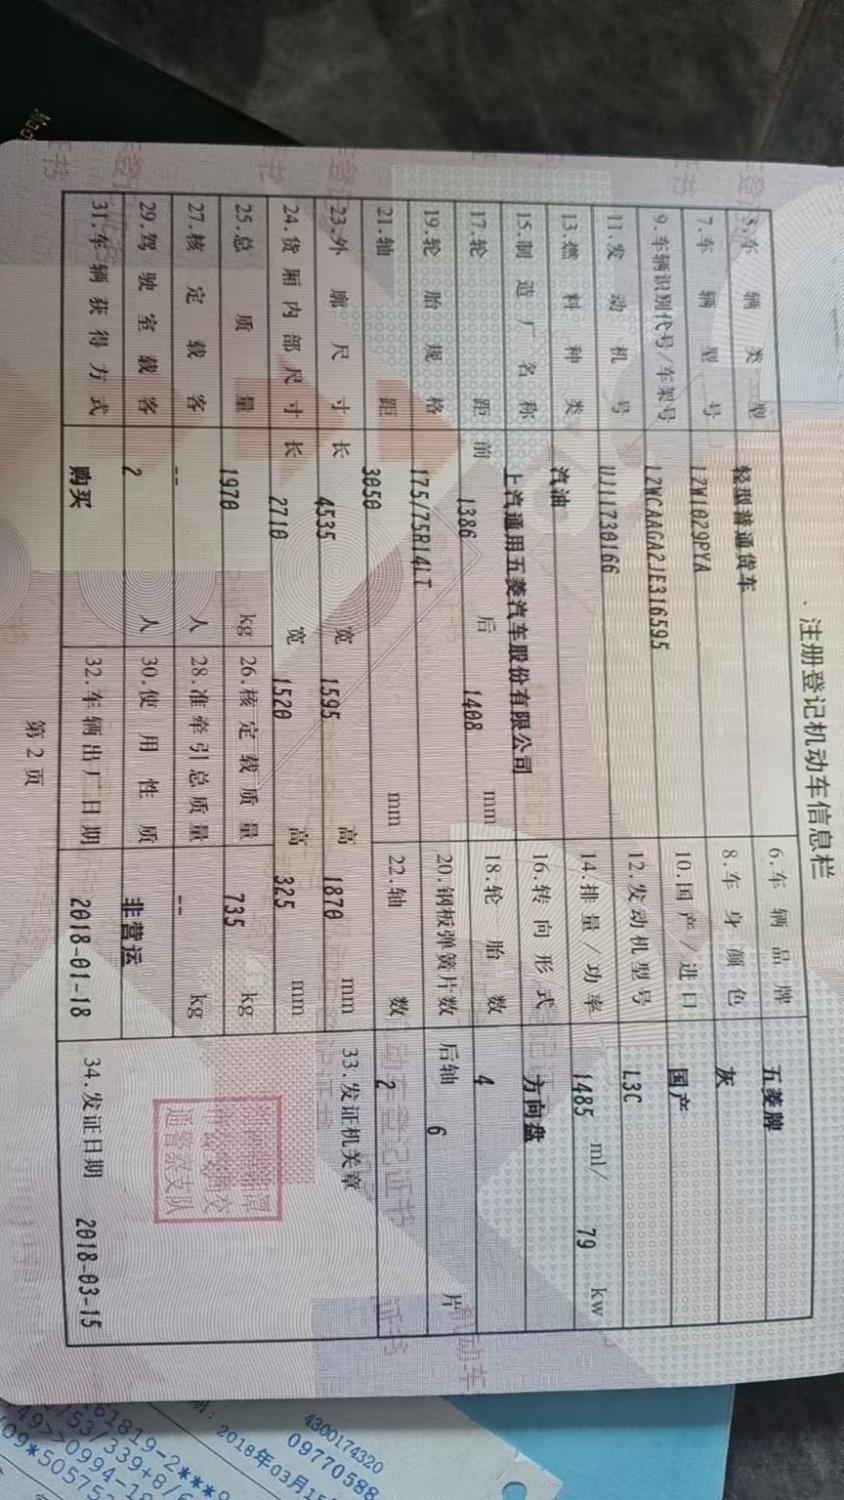 注册登记机动车信息栏
5.车辆类型 轻型普通货车 6.车辆品牌 五菱牌
7.车辆型号 LZW1029PYA 8.车身颜色 灰
9.车辆识别代号/车架号 LZWCAAGA2JE316595 10.国产/进口 国产
11.发动机号 UJ11730166 12.发动机型号 L3C
13.燃料种类 汽油 14.排量/功率 1485 ml/ 79 kw
15.制造厂名称 上汽通用五菱汽车股份有限公司 16.转向形式 方向盘
17.轮距 前 1386 后 1408 mm 18.轮胎数 4
19.轮胎规格 175/75R14LT 20.钢板弹簧片数 后轴 6 片
21.轴距 3050 mm 22.轴数 2
23.外廓尺寸 长 4535 宽 1595 高 1870 mm 33.发证机关章
24.货厢内部尺寸 长 2710 宽 1520 高 325 mm
25.总质量 1970 kg 26.核定载质量 735 kg
27.核定载客 -- 人 28.准牵引总质量 -- kg
29.驾驶室载客 2 人 30.使用性质 非营运
31.车辆获得方式 购买 32.车辆出厂日期 2018-01-18 34.发证日期 2018-03-15
通警察支队
第2页
4300174320
09770588
2018年03月15